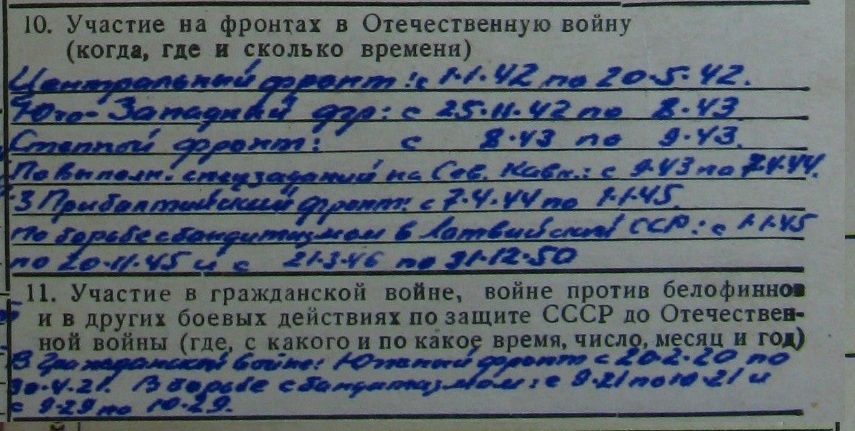 10. Участие на фронтах в Отечественную войну
(когда, где и сколько времени)
Центральный фронт: с 1·1·42 по 20·5·42.
Юго-Западный фр: с 25·11·42 по 8·43
Степной фронт: с 8·43 по 9·43.
По выполн. спецзаданий на Сев. Кавк.: с 9·43 по 7·4·44.
3 Прибалтийский фронт: с 7·4·44 по 1·1·45.
По борьбе с бандитизмом в Латвийской ССР: с 1·1·45
по 20·11·45 и с 21·3·46 по 31·12·50
11. Участие в гражданской войне, войне против белофиннов
и в других боевых действиях по защите СССР до Отечествен-
ной войны (где, с какого и по какое время, число, месяц и год)
В Гражданской войне: Южный фронт с 20·2·20 по
30·4·21. В борьбе с бандитизмом: с 9·21 по 10·21 и
с 9·29 по 10·29.